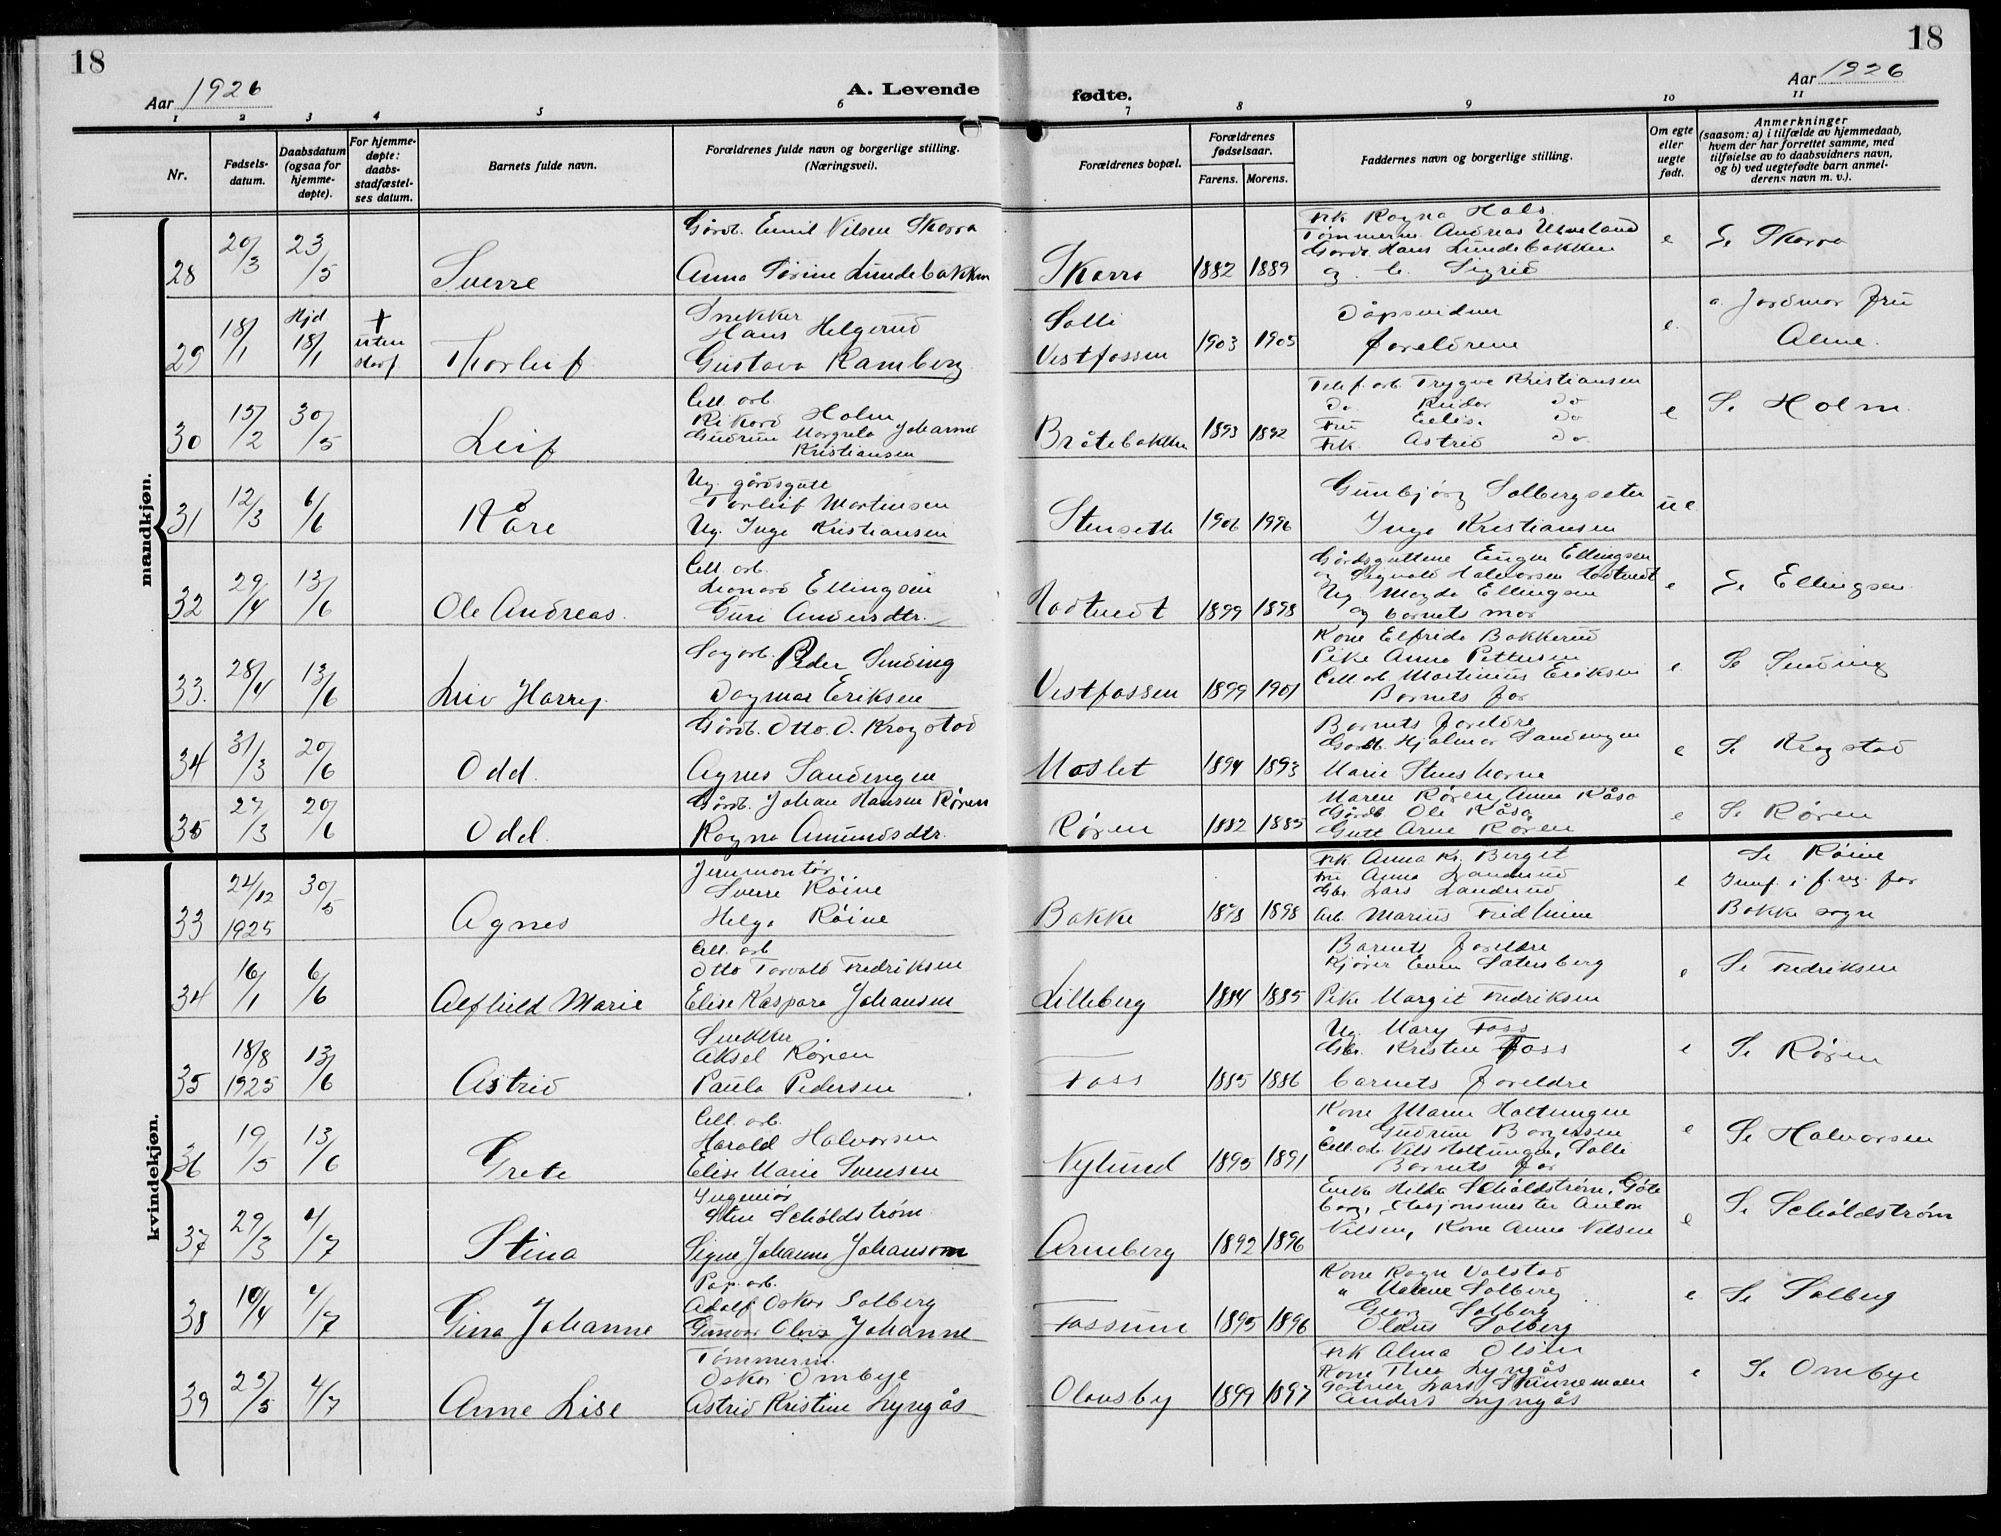 18
18
Aar 1926
A. Levende
fødte.
Aar 1926
1 2 3 4 5 6 7 8 9 10 11
Nr.
Fødsels-
datum.
Daabsdatum
(ogsaa for
hjemme-
døpte).
For hjemme-
døpte:
daabs-
stadfæstel-
ses datum.
Barnets fulde navn.
Forældrenes fulde navn og borgerlige stilling.
(Næringsvei).
Forældrenes bopæl.
Forældrenes
fødselsaar.
Farens. Morens.
Faddernes navn og borgerlige stilling.
Om egte
eller
uegte
født.
Anmerkninger
(saasom: a) i tilfælde av hjemmedaab,
hvem der har forrettet samme, med
tilføielse av to daabsvidners navn,
og b) ved uegtefødte barn anmel-
derens navn m. v.).
mandkjøn.
28 20/3 23/5 Sverre
Gårdb. Emil Nilsen Skarra
Anna Sørine Lundebakken
Skarra 1882 1889
Frk Ragna Hals.
Tømmerm. Andreas Ulveland
Gårdb. Hans Lundebakken
og Sigrid
e Se Skarra
29 18/1 Hjd 18/1 + uten Thorleif
Snekker
Hans Helgerud
Gustava Ramberg
Solli
Vestfossen 1903 1905
Dåpsvidner
foreldrene
e. a. Jordmor fru
Alme.
30 15/2 30/5 Leif
Cell. arb.
Rikard Holm
Gudrun Margrete Johanne
Kristiansen
Bråtebakken 1893 1892
Telef. arb Trygve Kristiansen
Do. Reidar do
Fru Eelis. do
Frk. Astrid do.
e Se Holm.
31 12/3 6/6 Kåre
Ug. gårdsgutt
Torleif Mortensen
Ug. Inga Kristiansen
Stenseth 1906 1996
Gunbjørg Solbergseter
Inga Kristiansen
ue
32 29/4 13/6 Ole Andreas.
Cell. arb.
Leonard Ellingsen
Guri Andersdtr.
1899 1898
Gårdsguttene Eugen Ellingsen
og Halvorsen
Ug. Magda Ellingsen
og barnets mor
e Se Ellingsen
33. 28/4 13/6 Liv Harry.
Sagarb. Peder Sinding
Dagmar Eriksen
Vestfossen 1899 1901
Kone Elfrida Bakkerud
Pike Anna Pettersen
Cell. arb Martinius Eriksen
Barnets far
e Se Sinding
34 31/3 20/6 Odd.
Gårdb. Otto. O. Krogstad
Agnes Sandengen
Moslet 1894 1893
Barnets foreldre
Gårdb. Hjalmar Sandengen
Marie Stenshorne
e Se Krogstad
35 27/3 20/6 Odd.
Gårdb. Johan Hansen Røren
Ragna Amundsdtr.
Røren 1882 1885
Maren Røren, Anna Råsa
Gårdb. Ole Råsa,
Gutt Arne Røren
e Se Røren
kvindekjøn.
33 24/12 1925 30/5 Agnes
Jernmontør
Sverre Røine
Helga Røine
Bakke 1898
Frk Anna Kr. Berget
Fru Anna Landerud
Gbr Lars Landerud
Arb. Marius Fredheim
e Se Røine
Innf. i f. reg. for
Bakke sogn
34 16/1 6/6 Alfhild Marie
Cell. arb
Otto Torvald Fredriksen
Elise Kaspara Johansen
Lilleberg 1884 1885
Barnets foreldre
Kjører Even Satersberg
Pike Margit Fredriksen
e Se Fredriksen
35 18/8 1925 13/6 Astrid
Snekker
Aksel Røren
Paula Pedersen
Foss 1885 1886
Ug. Mary Foss
Gbr. Kristen Foss
barnets foreldre
e Se Røren
36 19/5 13/6 Grete
Cell. arb.
Harald Halvorsen
Elise Marie Svensen
Nylund 1893 1891
Kone Maren Holtungen
Gudrun Borgersen
Cell. arb. Nils Holtungen, Solli
Barnets far
e Se Halvorsen
37 29/3 4/7 Stina
Ingeniør
Sten Schöldstrøm
Signe Johanna Johanson
Arneberg 1892 1896
Enke Hilda Schöldstrøm, Göte
borg, Stasjonsmester Anton
Nilsen, Kone Anna Nilsen
e Se Schöldstrøm
38 10/4 4/7 Gina Johanne
Pap. arb.
Adolf Oskar Solberg
Gunvor Olava Johanne
Fossum 1895 1896
Kone Ragn Valstad
" Malene Solberg
Georg Solberg
Olaus Solberg
e Se Solberg
39 25/5 4/7 Anne Lise
Tømmerm.
Oskar Ombye
Astrid Kristine Lyngås
Olausby 1899 1897
Frk Alma Olsen
Kone Thea Lyngås
Gartner Lars Skinnemoen
Anders Lyngås
e Se Ombye